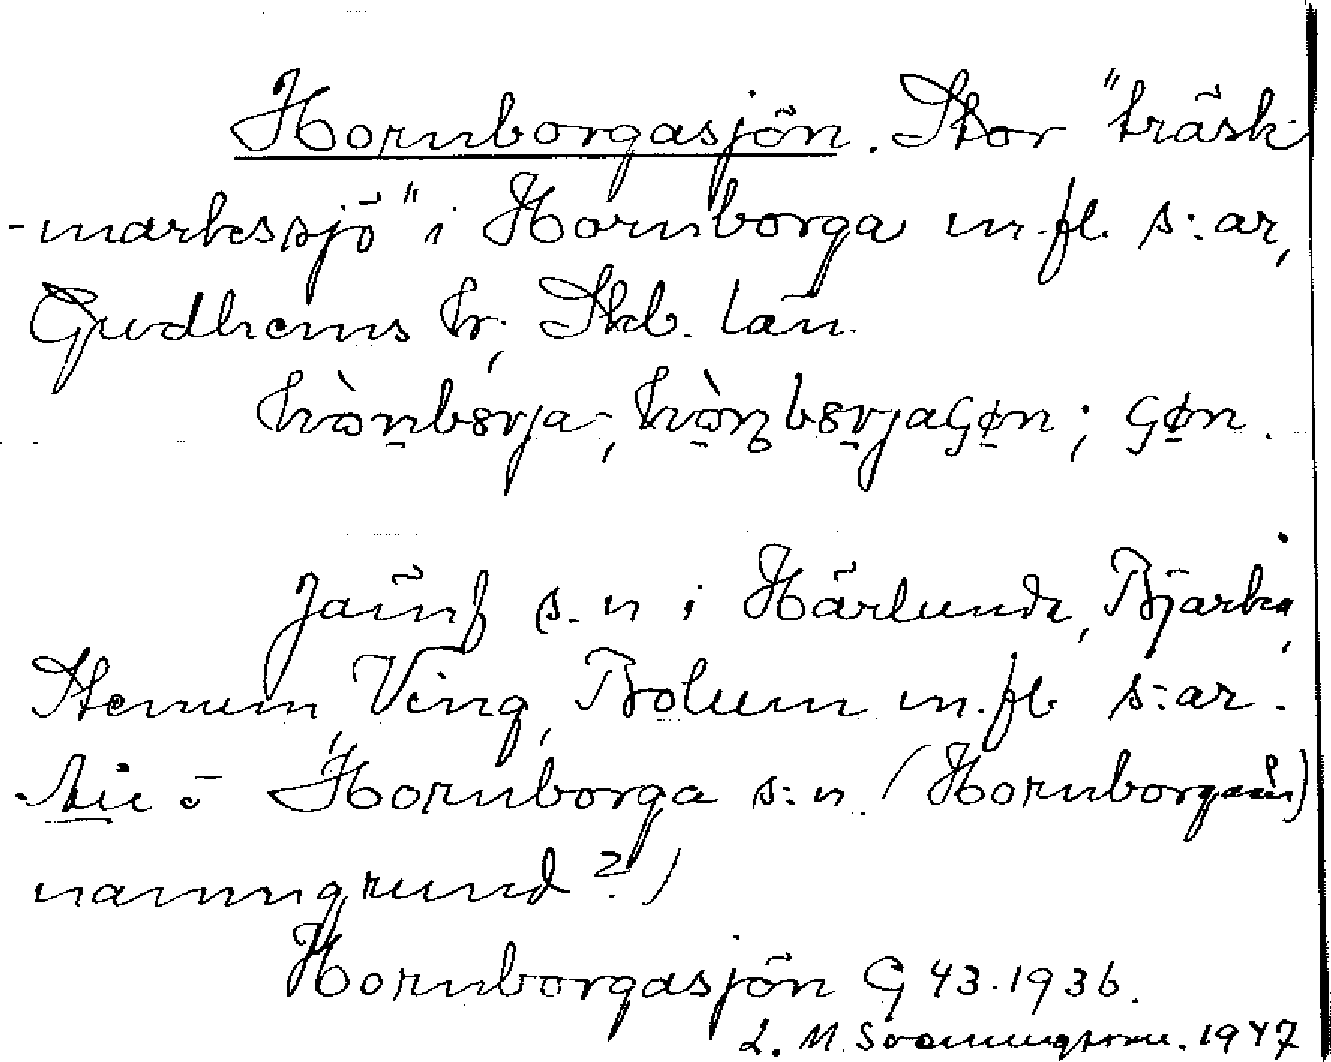 Hornborgasjön. Stor "träsk-
-markssjö" i Hornborga m.fl. s:ar,
Gudhems hr, Skb. län.
Jämf s.n i Härlunda, Bjärka,
Stenum, Ving, Bolum m.fl s:ar.
Hornborga s:n (Hornborgaån)
namngrund?)
Hornborgasjön G 43. 1936.
L. M. Svenungsson. 1947